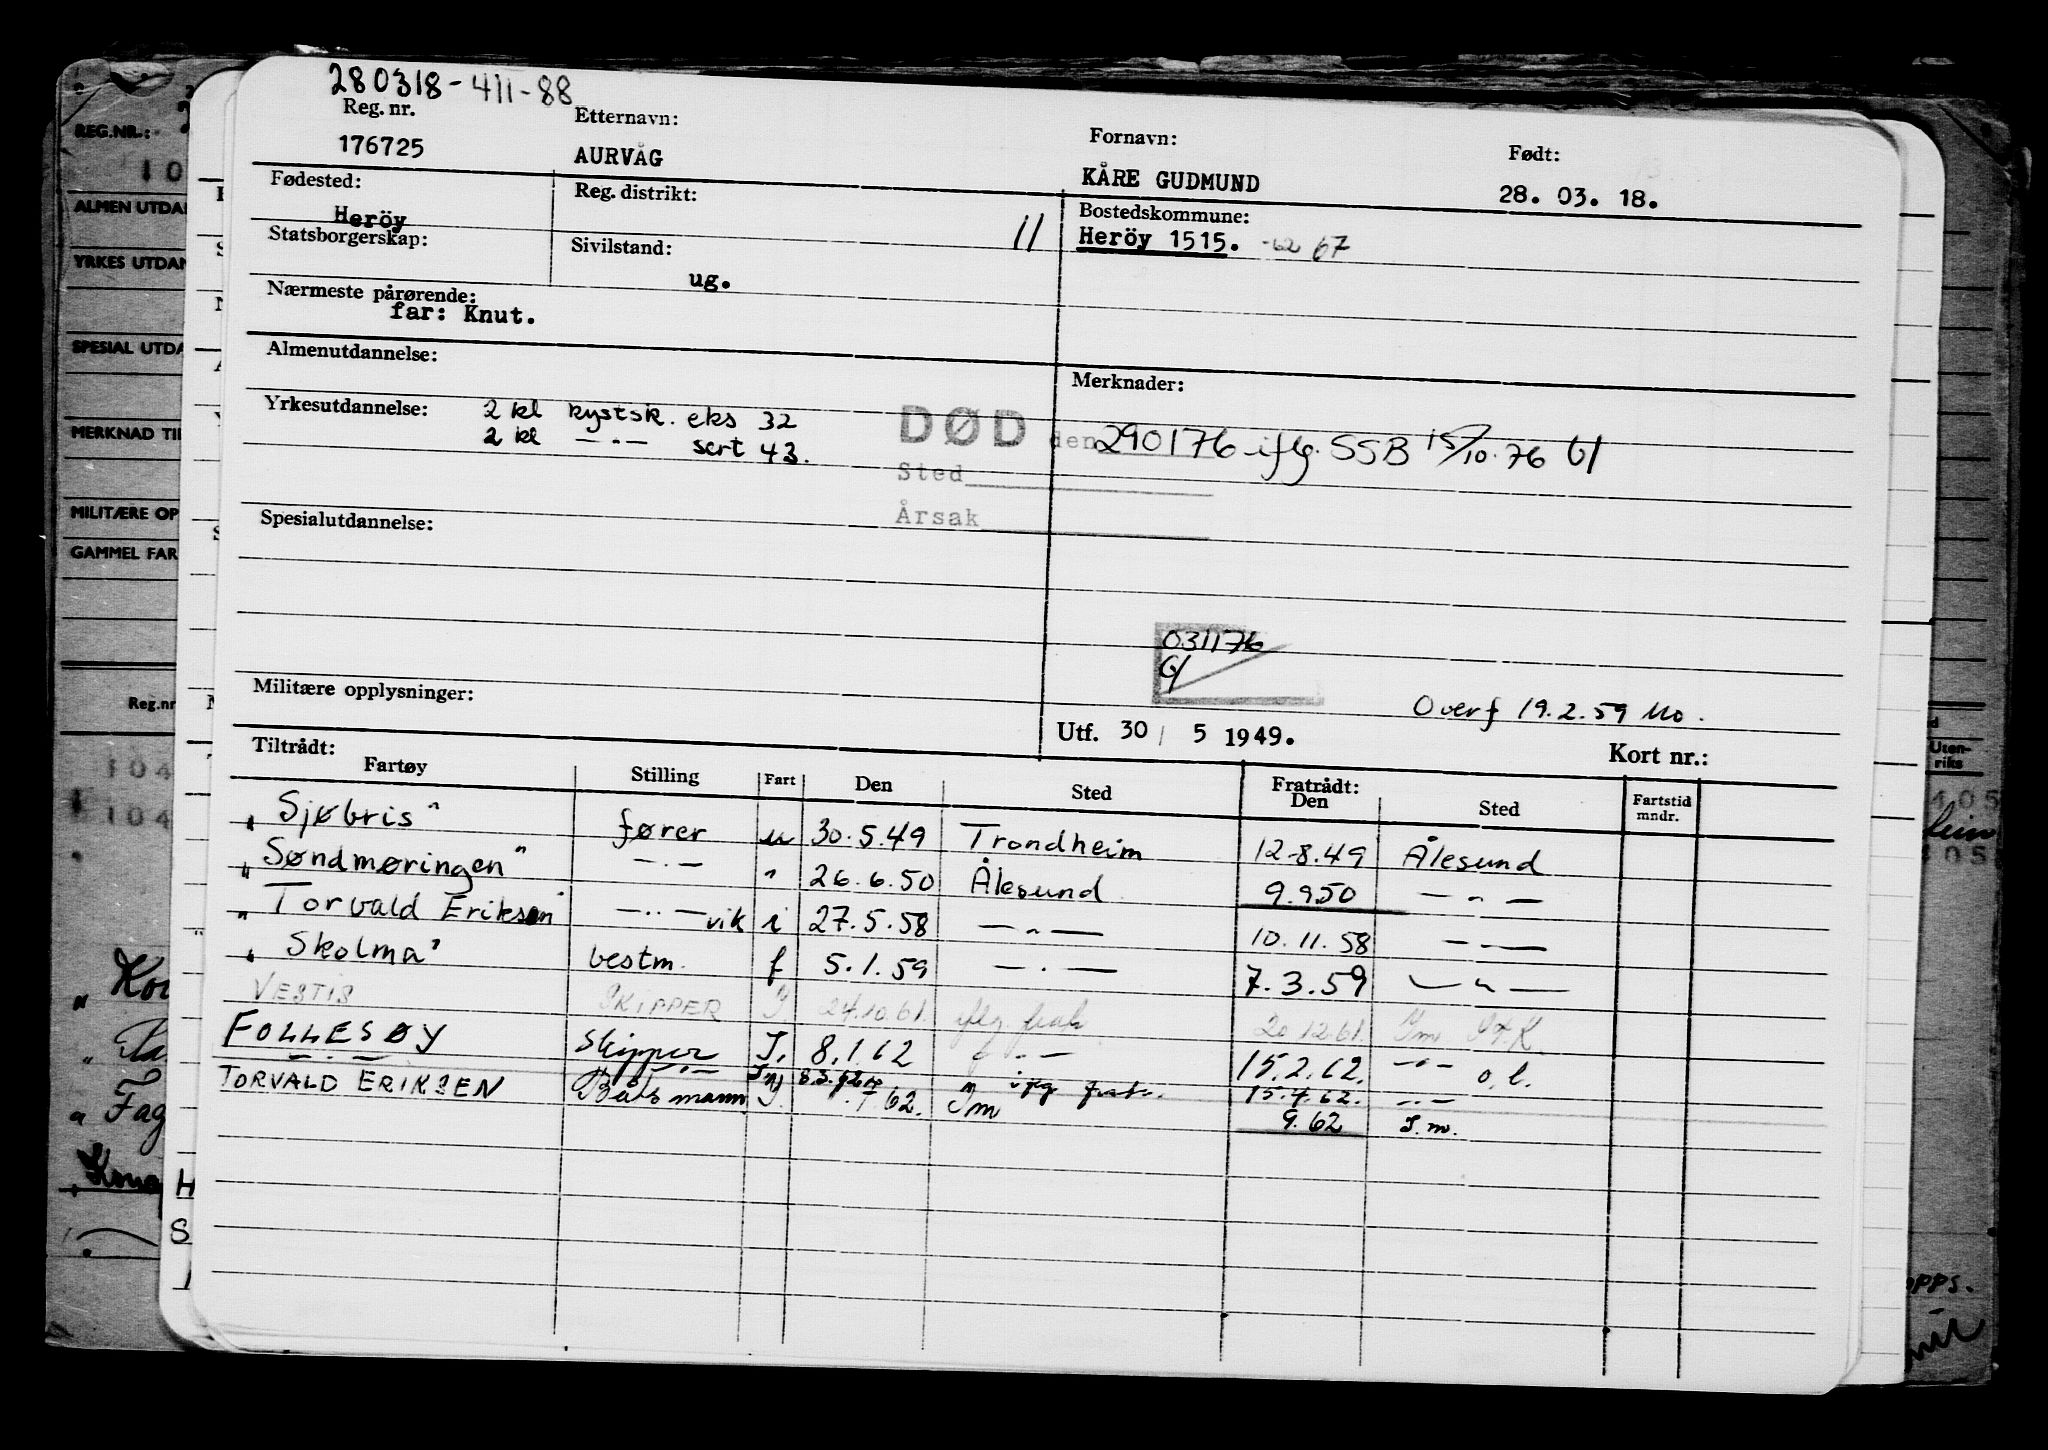 280318-411-88
Reg. nr. Etternavn: Fornavn: Født:
176725 AURVÅG KÅRE GUDMUND 28. 03. 18.
Fødested: Reg. distrikt: Bostedskommune:
Heröy 11 Heröy 1515. -62 67
Statsborgerskap: Sivilstand:
ug.
Nærmeste pårørende:
far: Knut.
Almenutdannelse: Merknader:
Yrkesutdannelse: 2 kl kystsk. eks 32
2 kl —„— sert 43.
DØD den 290176 iflg. SSB 15/10.76
Sted
Årsak
Spesialutdannelse:
031176
Militære opplysninger: Overf 19.2.59
Utf. 30/5 1949. Kort nr.:
Tiltrådt: Fratrådt:
Fartøy Stilling Fart Den Sted Den Sted Fartstid mndr.
"Sjøbris" fører u 30.5.49 Trondheim 12-8.49 Ålesund
"Søndmøringen" —„— " 26.6.50 Ålesund 9.9.50 —„—
"Torvald Eriksen" —„— vik i 27.5.58 —„— 10.11.58 —„—
"Skolma" bestm. f 5.1.59 —„— 7.3.59 —„—
VESTIS SKIPPER I. 24.10.61. iflg. frakt. 20.12.61. Im
FOLLESØY Skipper I. 8.1.62 —„— 15.2.62. —„— o.l.
—„— —„— 8.3.62 iflg 15.4.62. —„—
TORVALD ERIKSEN Båtsmann I. 62. Im 9.62 I.m.
REG.NR.:
10
ALMEN UTDA
YRKES UTDAN
SPESIAL UTDA
MERKNAD TI
MILITÆRE OP
GAMMEL FAR
Reg.nr
104
104
Uten-
riks
405
405
H
S